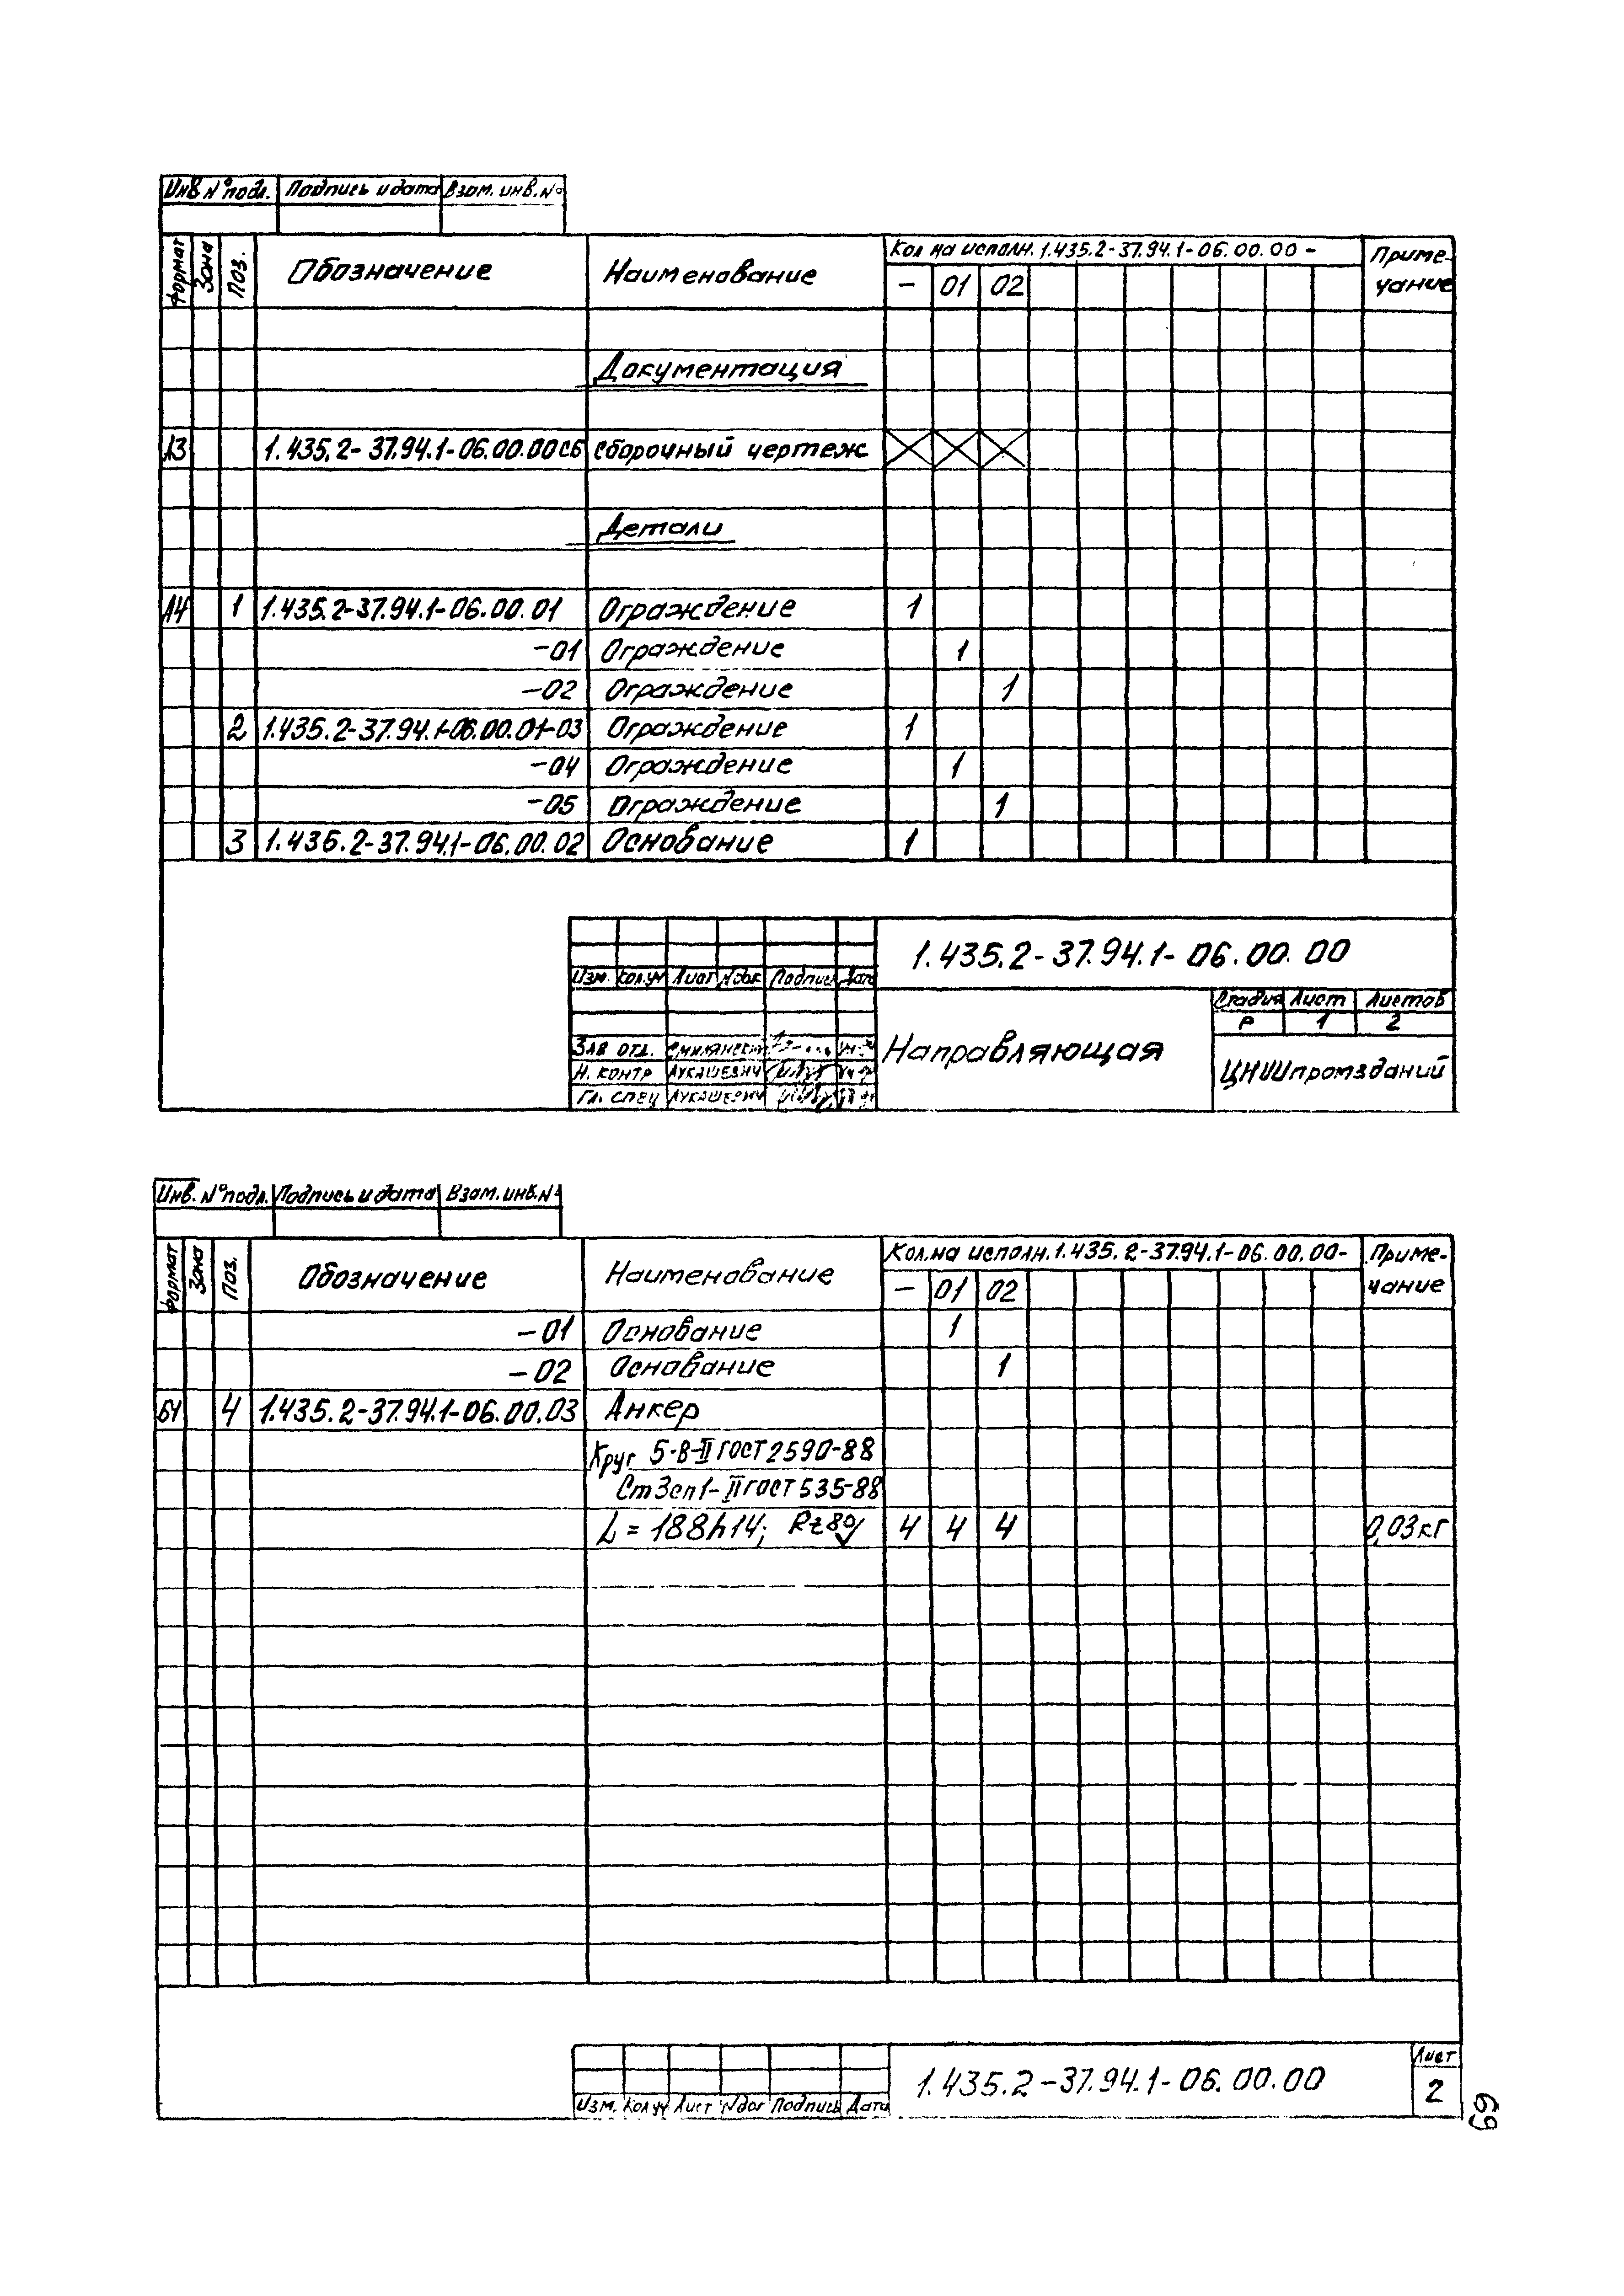 Инв. N° подл. Подпись и дата Взам. инв. N°
Формат Зона Поз. Обозначение Наименование Кол на исполн. 1.435.2-37.94.1-06.00.00 - Приме-
чание
- 01 02
Документация
А3 1.435.2-37.94.1-06.00.00СБ Сборочный чертеж
Детали
А4 1 1.435.2-37.94.1-06.00.01 Ограждение 1
-01 Ограждение 1
-02 Ограждение 1
2 1.435.2-37.94.1-06.00.01-03 Ограждение 1
-04 Ограждение 1
-05 Ограждение 1
3 1.435.2-37.94.1-06.00.02 Основание 1
1.435.2-37.94.1-06.00.00
Изм. Кол.уч Лист Nдок Подпись Дата
Стадия Лист Листов
Р 1 2
Направляющая
Зав отд.
Н. контр Лукашевич
Гл. спец Лукашевич
ЦНИИпромзданий
Инв. N° подл. Подпись и дата Взам. инв. N°
Формат Зона Поз. Обозначение Наименование Кол.на исполн. 1.435.2-37.94.1-06.00.00- Приме-
чание
- 01 02
-01 Основание 1
-02 Основание 1
БЧ 4 1.435.2-37.94.1-06.00.03 Анкер
Круг 5-В-II ГОСТ 2590-88
Ст3сп1-II ГОСТ 535-88
L = 188h14; Rz80 4 4 4 0,03кг
1.435.2-37.94.1-06.00.00
Лист
2
Изм. Кол уч Лист Nдог Подпись Дата
69